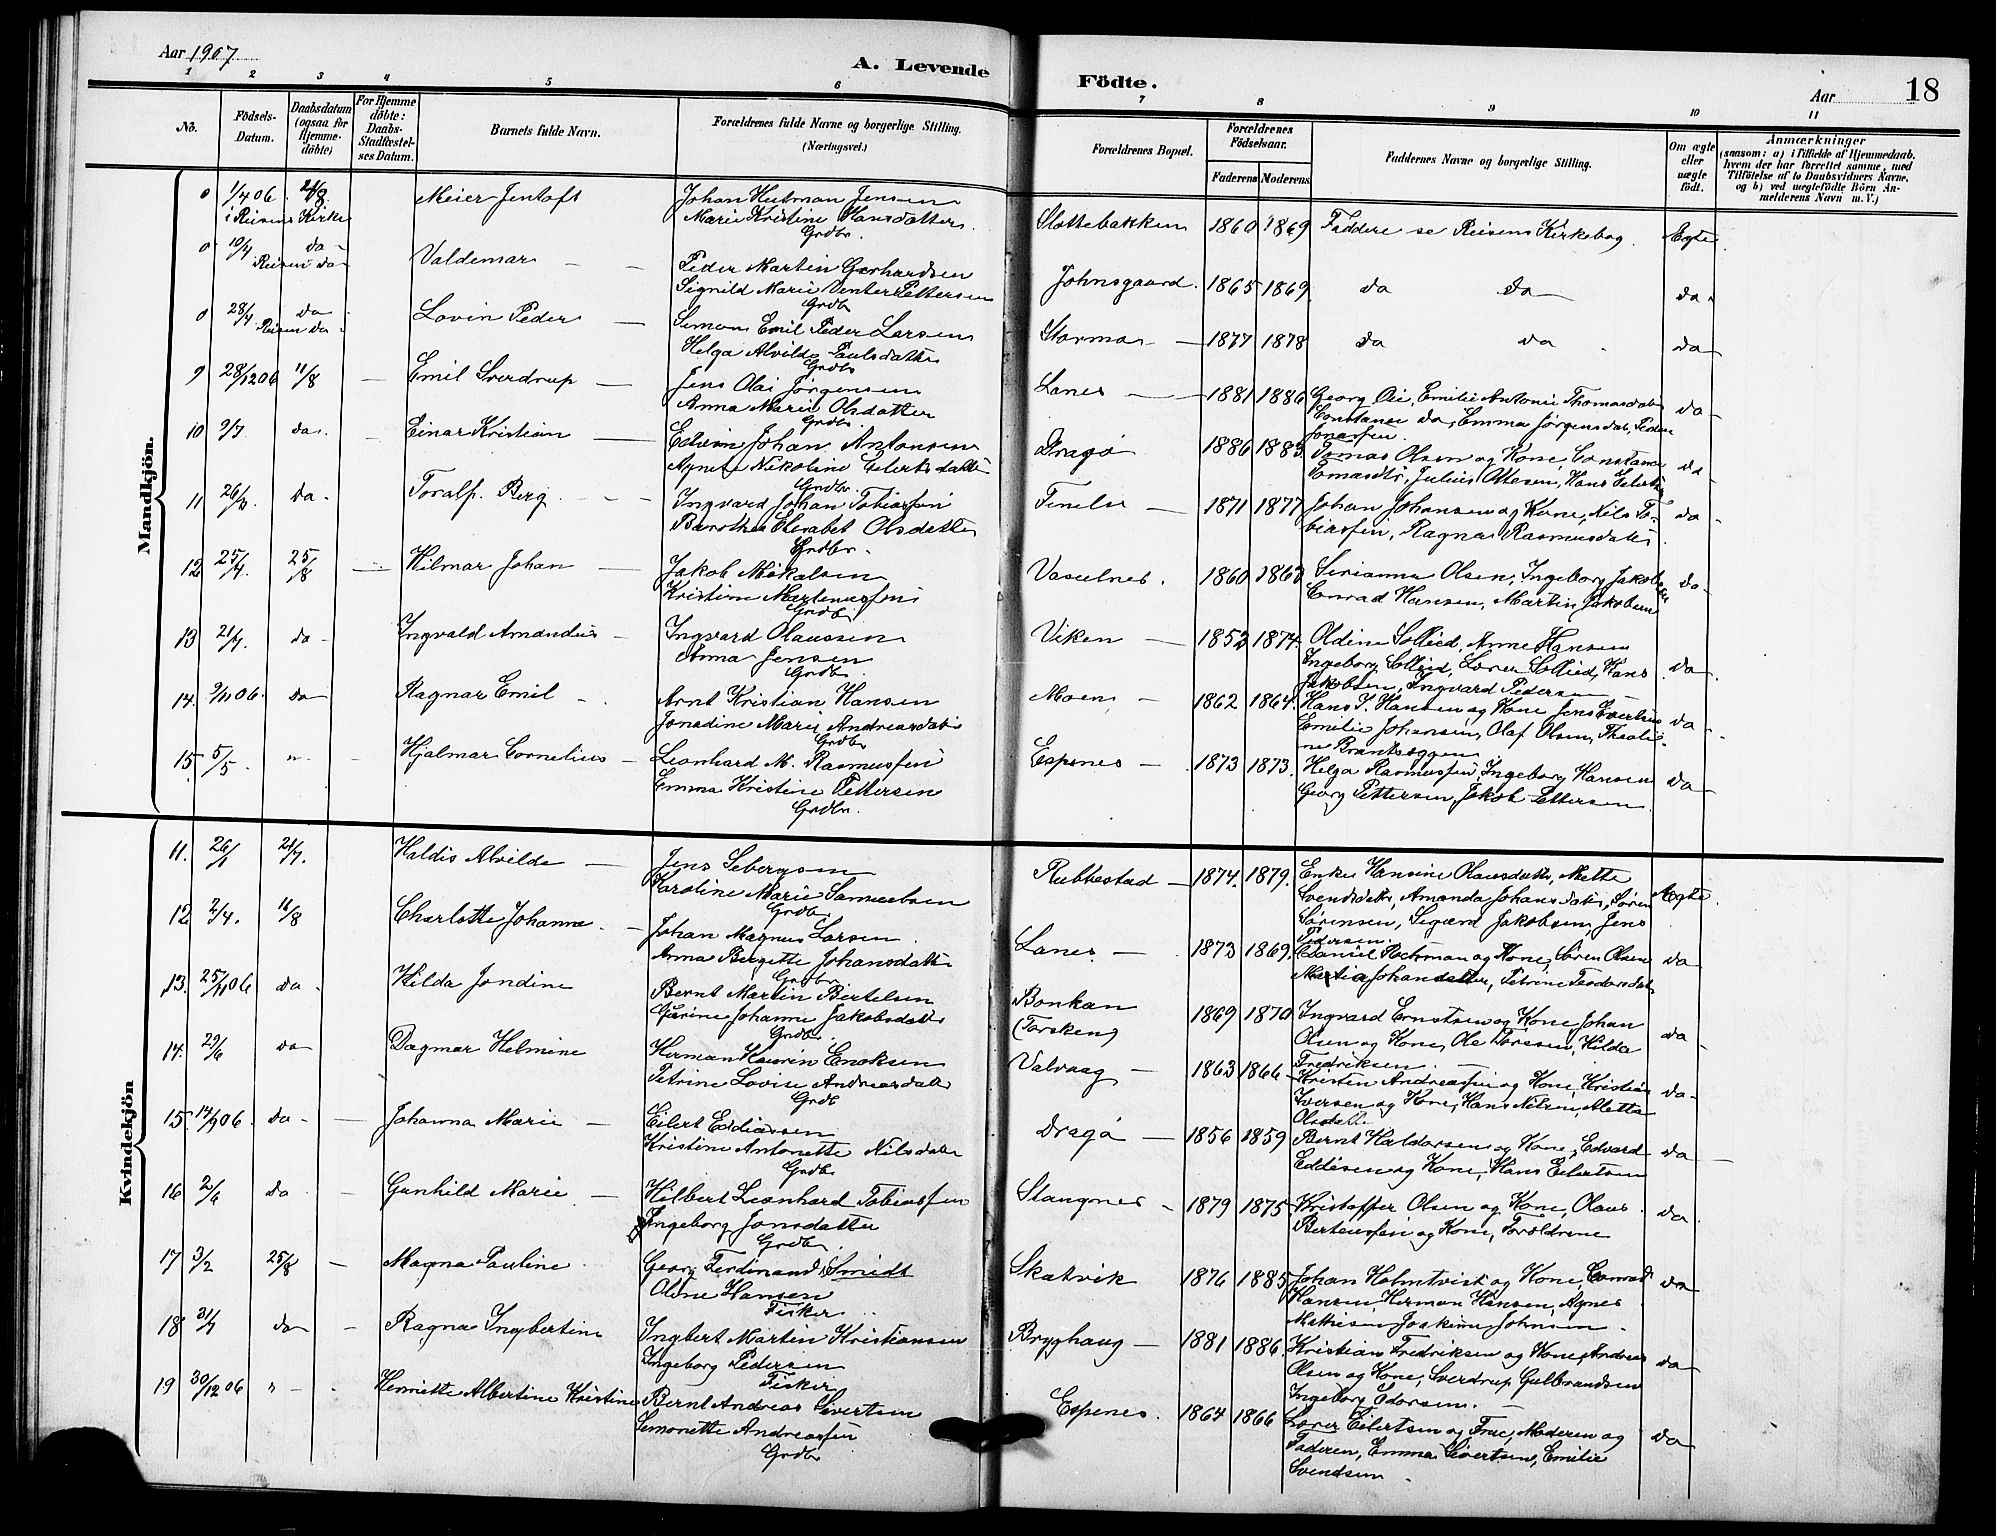 Aar 1907
A. Levende
Födte.
Aar 18
1 2 3 4 5 6 7 8 9 10 11
No.
Födsels-Datum.
Daabsdatum (ogsaa for Hjemme-döbte)
For Hjemme döbte: Daabs-Stadfæstel-ses Datum.
Barnets fulde Navn.
Forældrenes fulde Navne og borgerlige Stilling.
(Næringsvei.)
Forældrenes Bopæl.
Forældrenes Födselsaar.
Faderens Moderens
Faddernes Navne og borgerlige Stilling.
Om ægte eller uægte födt.
Anmærkninger
(saasom: a) i Tilfælde af Hjemmedaab,
hvem der har forrettet samme, med
Tilföielse af to Daabsvidners Navne.
og b) ved uegtefödte Börn An-
melderens Navn m. V.)
Mandkjön.
0 1/4 06 Meier Jentoft Johan Hutman Jensen
i Reisens Kirke Marie Kristine Hansdatter
Grdbr.
Slottebakken 1860 1869 Faddere se Reisens Kirkebog. Ægte
0 10/4 da Valdemar Peder Martin Gerhardsen
Reisen da Signild Marie Venter Pettersen
Grdbr
Johnsgaard. 1865 1869 da da da
0 28/4 da Lovin Peder Simon Emil Peder Larsen
Reisen da Helga Alvilde Paulsdatter
Grdbr
Stormo 1877 1878 da da da
9 28/12 06 11/8 Emil Sverdrup Jens Olai Jörgensen
Anna Marie Olsdatter
Grdbr.
Lanes 1881 1886 Georg Oie, Emilie Antonie Thomasdatter
Constance da, Emma Jørgensdat, Peder
Jonassen.
da
10 9/7 da Einar Kristian Edvin Johan Antonsen
Agnete Nikoline Eilertsdatter
Grdbr
Dragö 1886 1883 Tomas Olsen og Kone, Constance
Tomasdtr, Julius Ottesen, Hans Eilertsen
da
11 da Toralf Berg Ingvard Johan Tobiassen
Berntha Elisabet Olsdatter
Grdbr.
Finelv 1871 1877 Johan Johansen og Kone, Nils To-
biassen, Ragna Rasmusdatter
da
12 25/4. 25/8 Hilmar Johan Jakob Mikalsen
Kristine Martenussen
Grdbr.
1860 Serianna Olsen, Ingeborg Jakobsen
Conrad Hansen, Martin Jakobsen
da
13 21/7. da Ingvald Amandus Ingvard Olaussen
Anna Jensen
Grdbr.
Viken 1853 1874 Oldine Sollied, Anne Hansen
Ingeborg Sollied, Lorer Sollied, Hans
Jakobsen, Ingvard Pedersen
da
14. 9/11 06. da Ragnar Emil Arnt Kristian Hansen
Jonadine Marie Andreasdatter
Grdbr
Moen 1862 1864 Hans J. Hansen og Kone Jens Evertsen
Emilie Johansen, Olaf Olsen, Thoali-
ne Brankseggen
da
15 5/5 " Hjalmar Cornelius Leonhard M. Rasmussen
Emma Kristine Pettersen
Grdbr.
Espenes 1873 1873. Helga Rasmussen, Ingeborg Hansen
Georg Pettersen, Jakob Pettersen.
da
Kvindekjön
11. 26/1 21/7. Haldis Alvilde Jens Sebergsen
Karoline Marie Samuelsen
Grdbr
Rubbestad 1874. 1879. Enke Hansine Olausdatter, Mette
Svendsdatter, Amanda Johansdatter, Søren
Sørensen, Sigurd Jakobsen, Jens
Pedersen.
Ægte
12 2/4. 11/8 Charlotte Johanna Johan Magnus Larsen
Anna Bergitte Johansdatter
Grdbr
Lanes 1873 1869. Daniel Rochman og Kone, Søren Olsen
Martia Johandatter, Petrine Teodorsdat
da
13. 25/11 06 da Hilda Jondine Bernt Martin Bertelsen
Gurine Johanne Jakobsdatter
Grdbr
Bonkan
(Torsken)
1869 1870 Ingvard Ernstsen og Kone, Johan
Olsen og Kone, Ole Torsen, Hilda
Fredriksen.
da
14. 29/6 da Dagmar Helmine Herman Kaurin Enoksen
Petrine Lovise Andreasdatter
Grdb
Valvaag 1863 1866 Kristen Andreassen og Kone, Kristian
Iversen og Kone, Hans Nilsen, Aletta
Olsdatter
da
15. 14/9 06. da Johanna Marie Eilert Eddiassen
Kristine Antonette Nilsdatter
Grdbr
Dragö 1856 1859 Bernt Haldorsen og Kone, Edvard
Eddisen og Kone, Hans Eilertsen
da
16 2/6 da Gunhild Marie Hilbert Leonhard Tobiassen
Ingeborg Jonsdatter
Grdbr.
Stangnes 1879 1875 Kristoffer Olsen og Kone, Olaus
Bertenssen og Kone, Foröldrene
da
17 3/2 25/8 Magna Pauline Georg Ferdinand Smidt
Oldne Hansen
Fisker
Skatvik 1876 1885 Johan Holmtvist og Kone, Conrad
Hansen Herman Hansen, Agnes
Mathisen Joakim Johnsen
da
18 31/7 da Ragna Ingbertine Ingbert Martin Kristiansen
Ingeborg Pedersen
Fisker
Bryghaug 1881 1886. Kristian Fredriksen og Kone, Andreas
Olsen og Kone, Sverdrup Gulbrandsen
Ingeborg Edorsen.
da
19 30/12 06 " Henriette Albertine Kristine Bernt Andreas Sivertsen
Simonette Andreassen
Grdbr
Espenes. 1864 1866 Lærer Eilertsen og Frue, Moderen og
Faderen, Emma Sivertsen, Emilie
Svendsen.
da